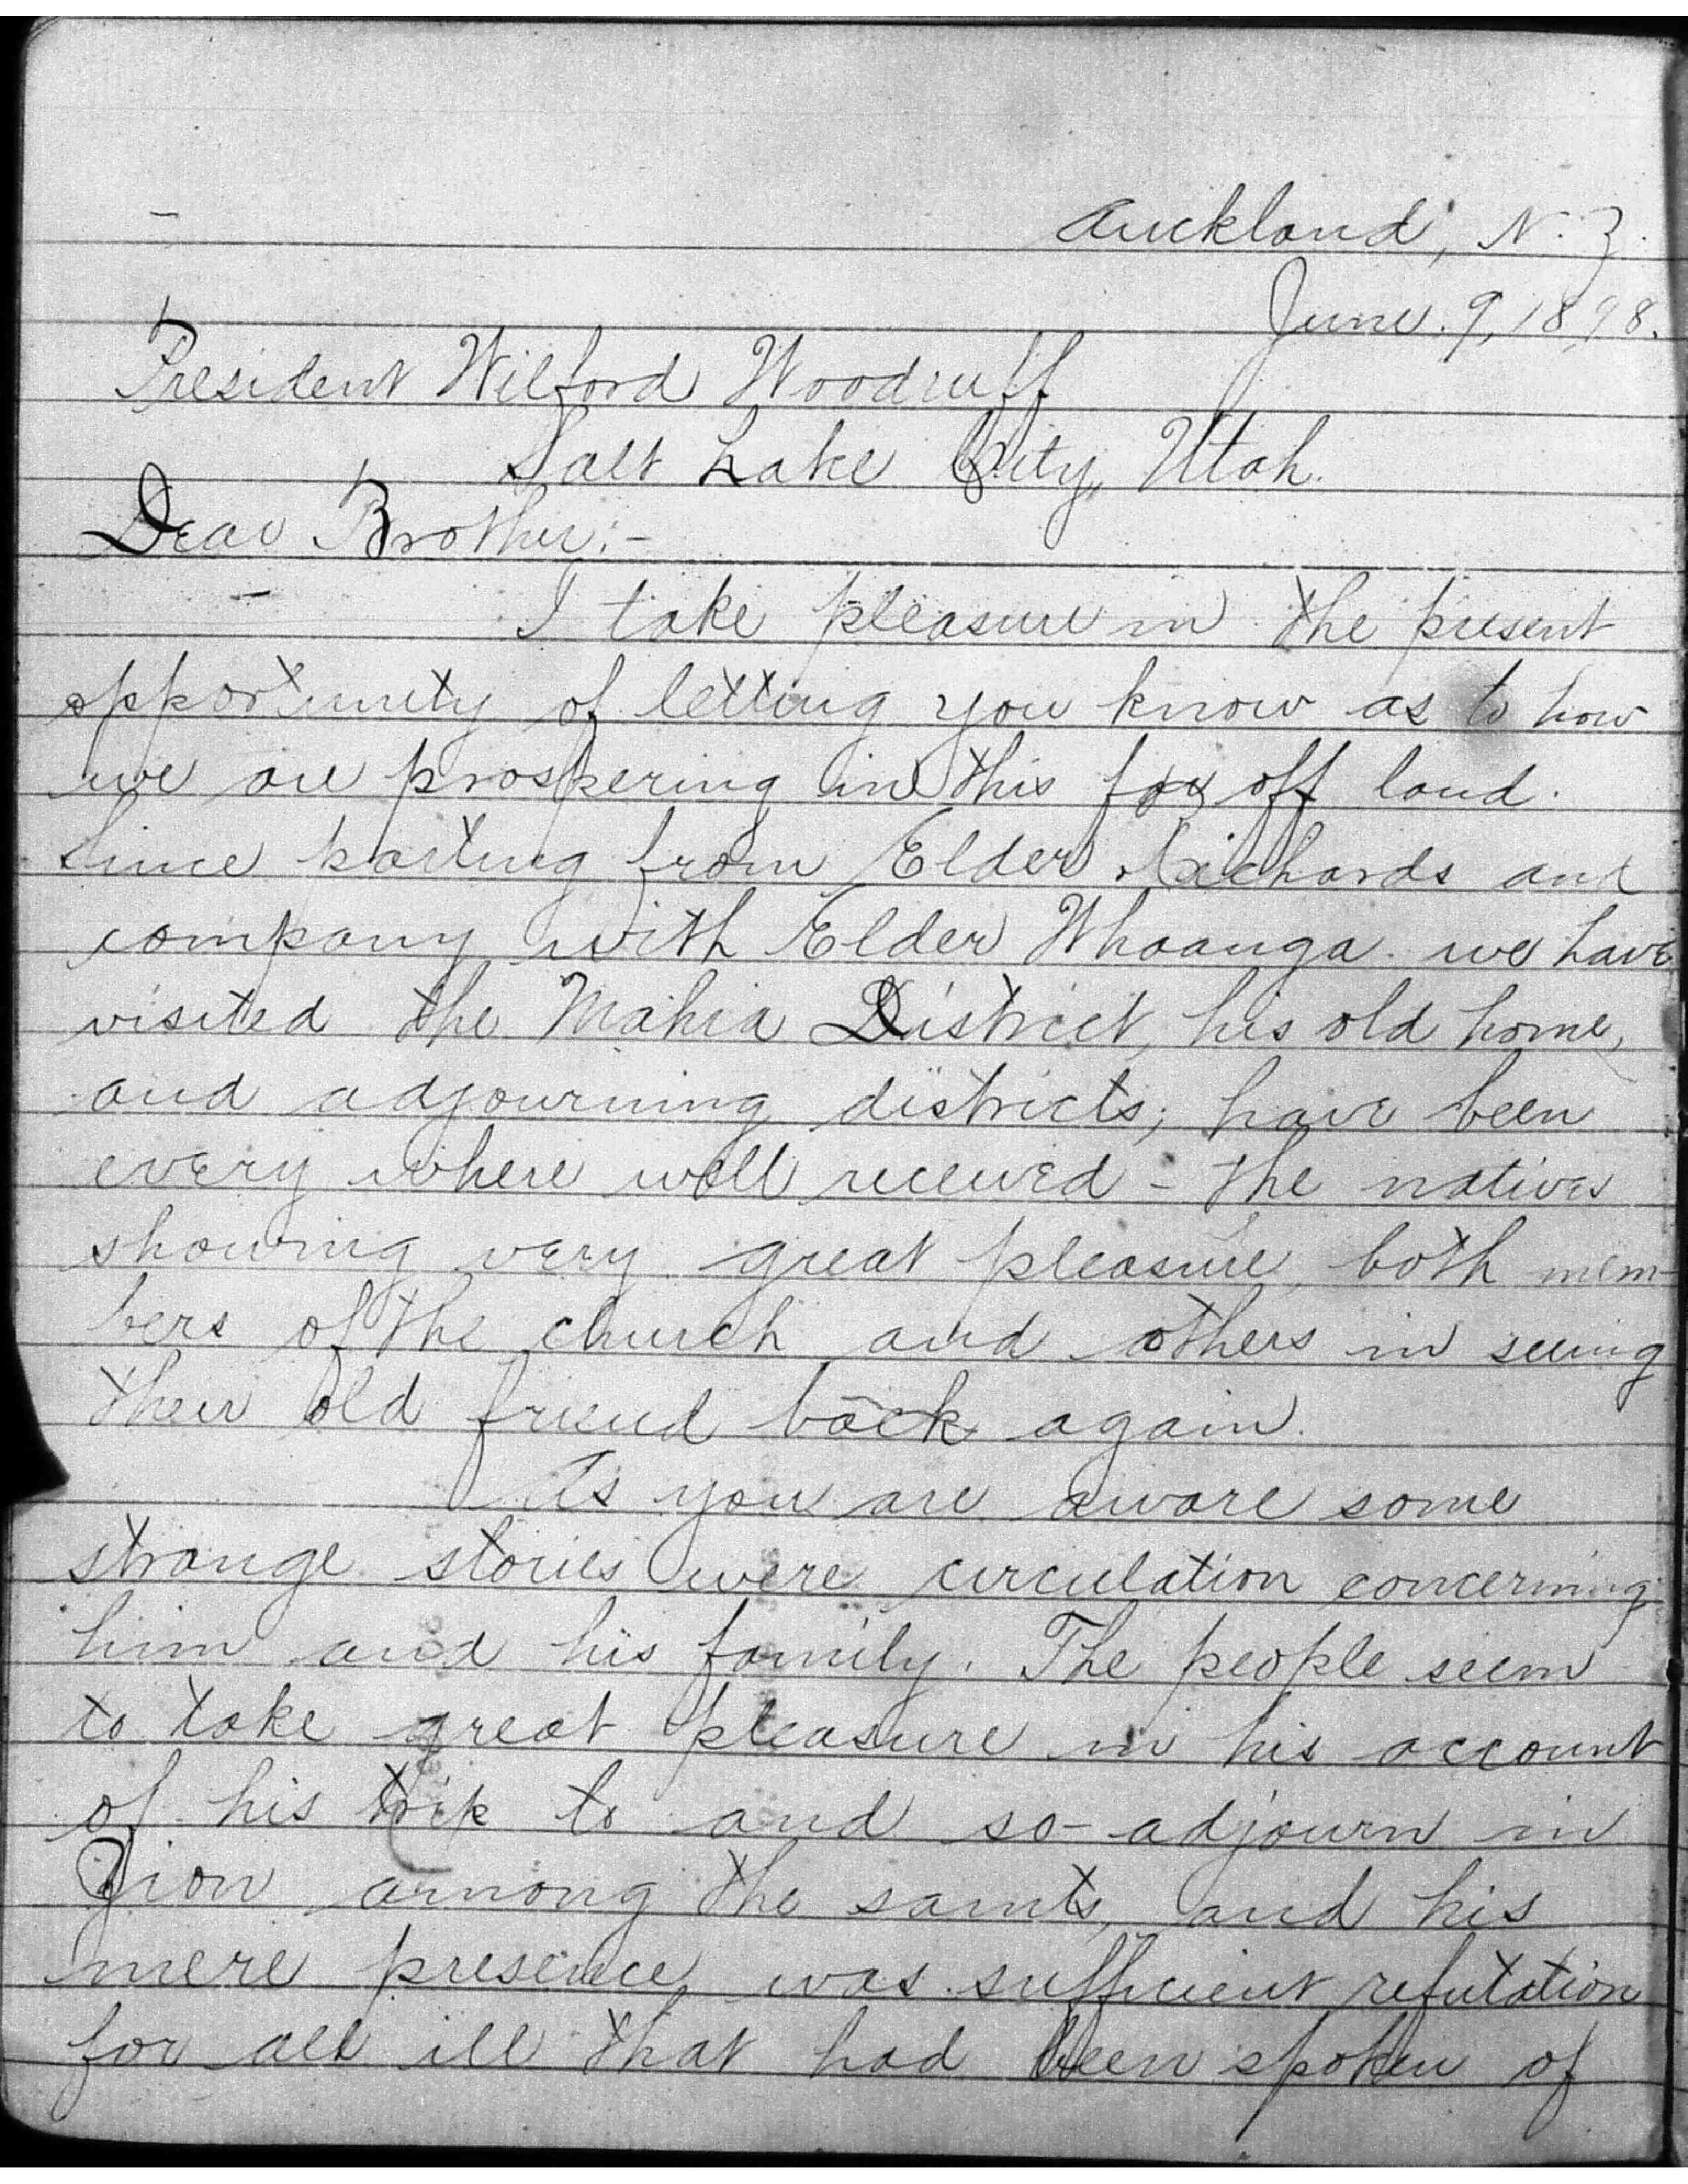 Auckland, N. Z.
June. 9, 1898.
President Wilford Woodruff
Salt Lake City, Utah.
Dear Brother:-
I take pleasure in the present
opportunity of letting you know as to how
we are prospering in this far off land.
Since parting from Elder Richards and
company with Elder Whaanga we have
visited the Mahia District, his old home,
and adjourning districts; have been
every where well received - the natives
showing very great pleasure, both mem-
bers of the church and others in seeing
their old friend back again.
As you are aware some
strange stories were circulation concerning
him and his family. The people seem
to take great pleasure in his account
of his trip to and so-adjourn in
Zion among the saints, and his
mere presence was sufficient refutation
for all ill that had been spoken of